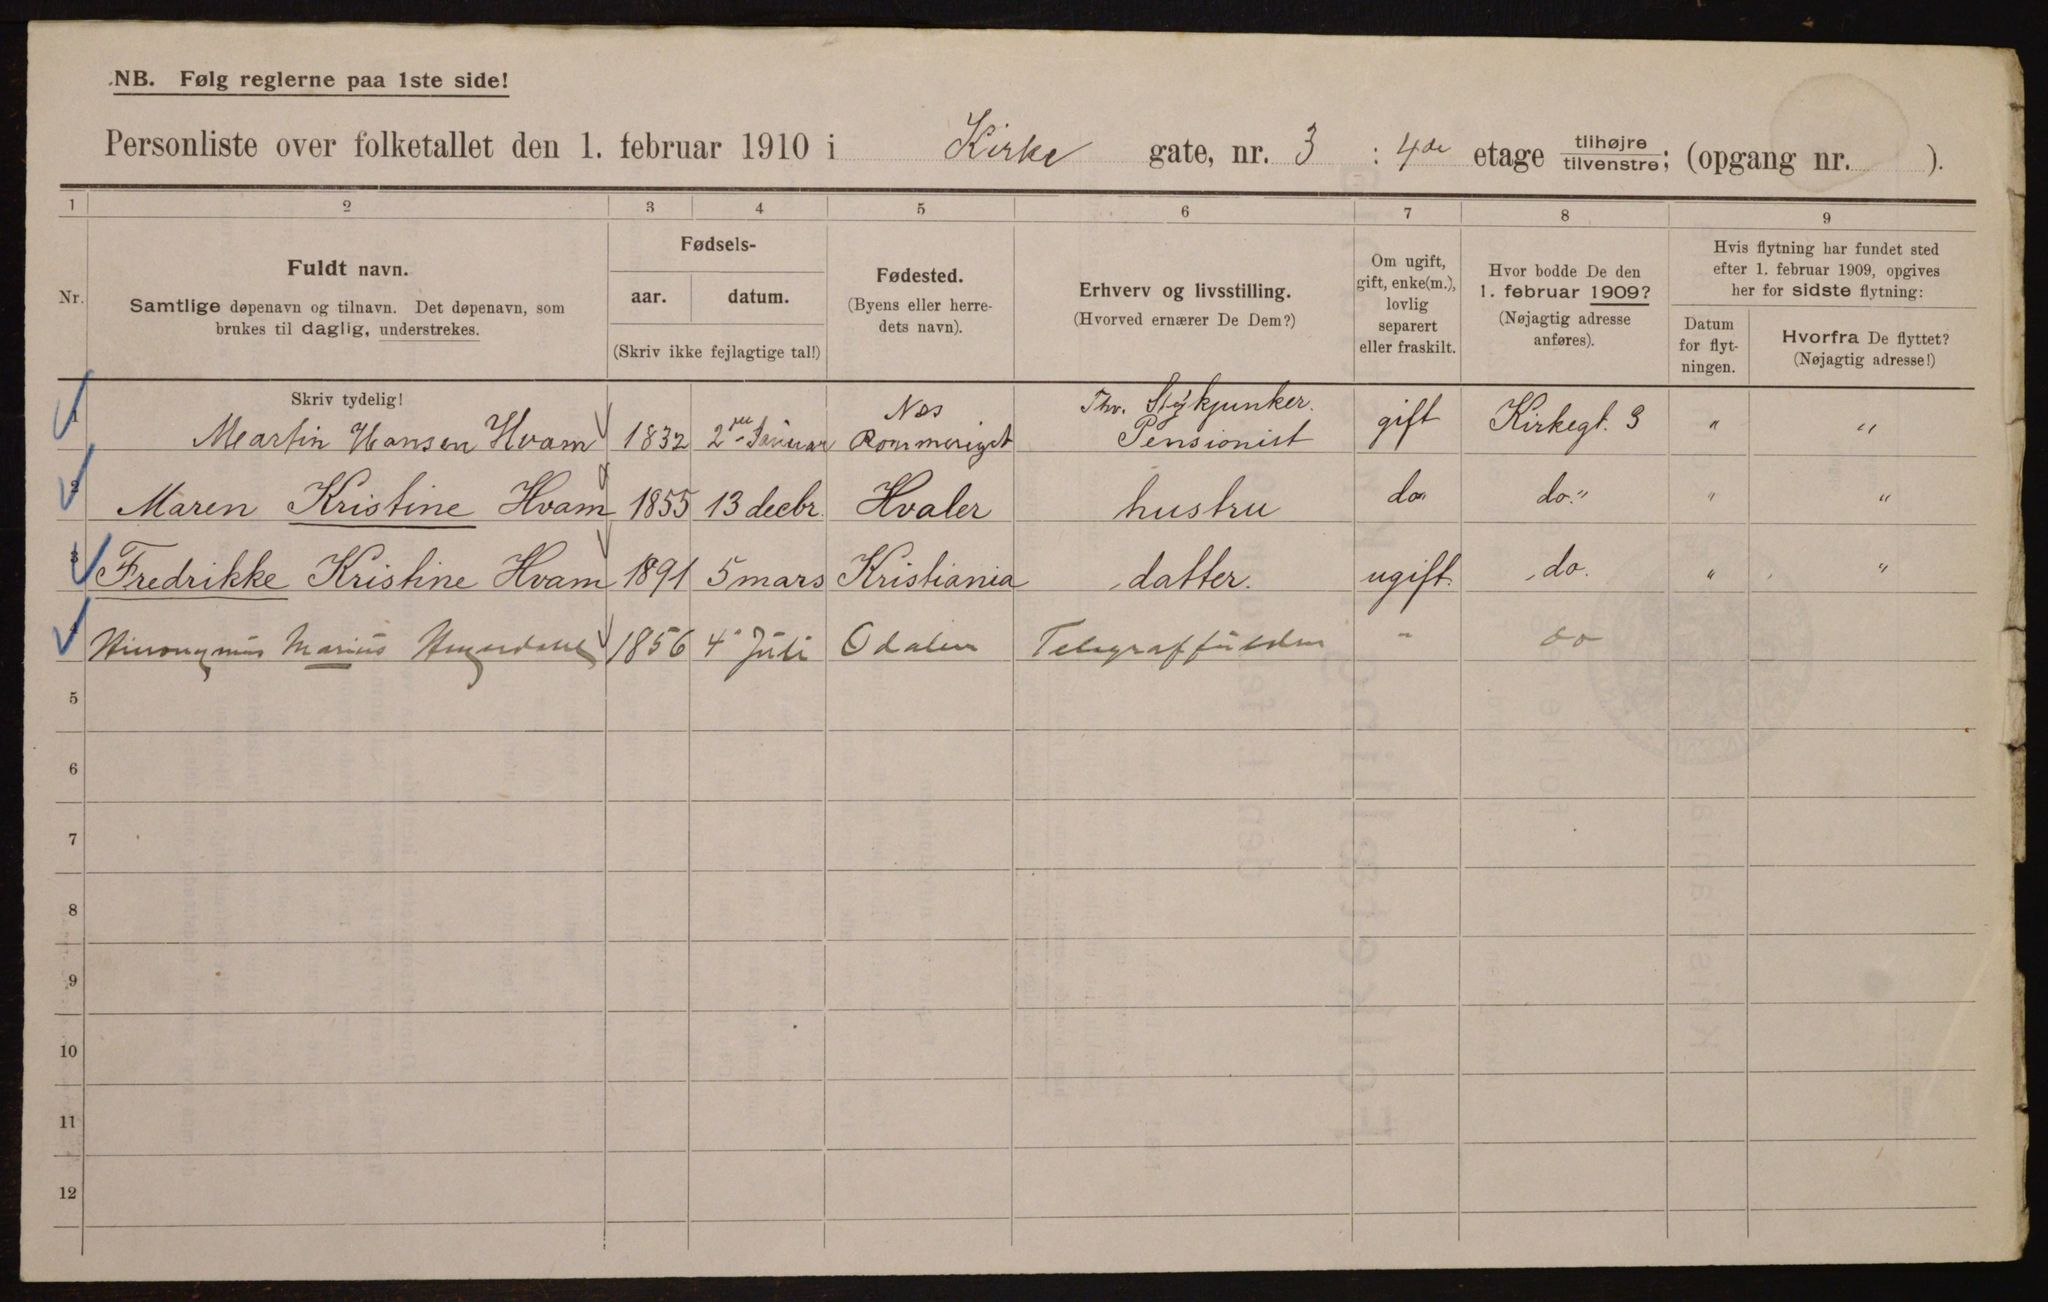 NB. Følg reglerne paa 1ste side!
Personliste over folketallet den 1. februar 1910 i Kirke gate, nr. 3 : 4de etage tilhøjre/tilvenstre; (opgang nr. ).
1 2 3 4 5 6 7 8 9
Nr.
Fuldt navn.
Samtlige døpenavn og tilnavn. Det døpenavn, som
brukes til daglig, understrekes.
Fødsels-
aar. datum.
(Skriv ikke fejlagtige tal!)
Fødested.
(Byens eller herre-
dets navn).
Erhverv og livsstilling.
(Hvorved ernærer De Dem?)
Om ugift,
gift, enke(m.),
lovlig
separert
eller fraskilt.
Hvor bodde De den
1. februar 1909?
(Nøjagtig adresse
anføres).
Hvis flytning har fundet sted
efter 1. februar 1909, opgives
her for sidste flytning:
Datum
for flyt-
ningen.
Hvorfra De flyttet?
(Nøjagtig adresse!)
Skriv tydelig!
1 Martin Hansen Hvam 1832 2 Januar Nes Rommeriget Stykjunker. Pensionist gift Kirkegt. 3 " "
2 Maren Kristine Hvam 1855 13 decbr. Hvaler hustru do" do." " "
3 Fredrikke Kristine Hvam 1891 5 mars Kristiania datter. ugift. do. " "
4 Hieronymus Marius 1856 4 Juli Odalen " do
5
6
7
8
9
10
11
12